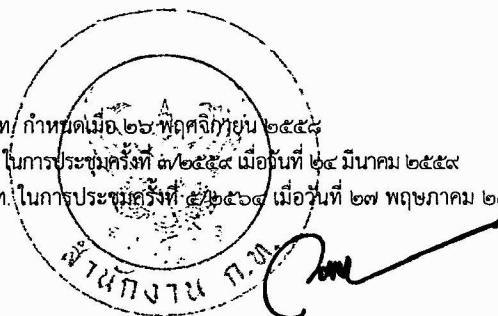 ท. กำหนดเมื่อ ๒๖ พฤศจิกายน ๒๕๕๘
ในการประชุมครั้งที่ ๓/๒๕๕๙ เมื่อวันที่ ๒๔ มีนาคม ๒๕๕๙
ท. ในการประชุมครั้งที่ ๕/๒๕๖๔ เมื่อวันที่ ๒๗ พฤษภาคม
สำนักงาน ก.ท.